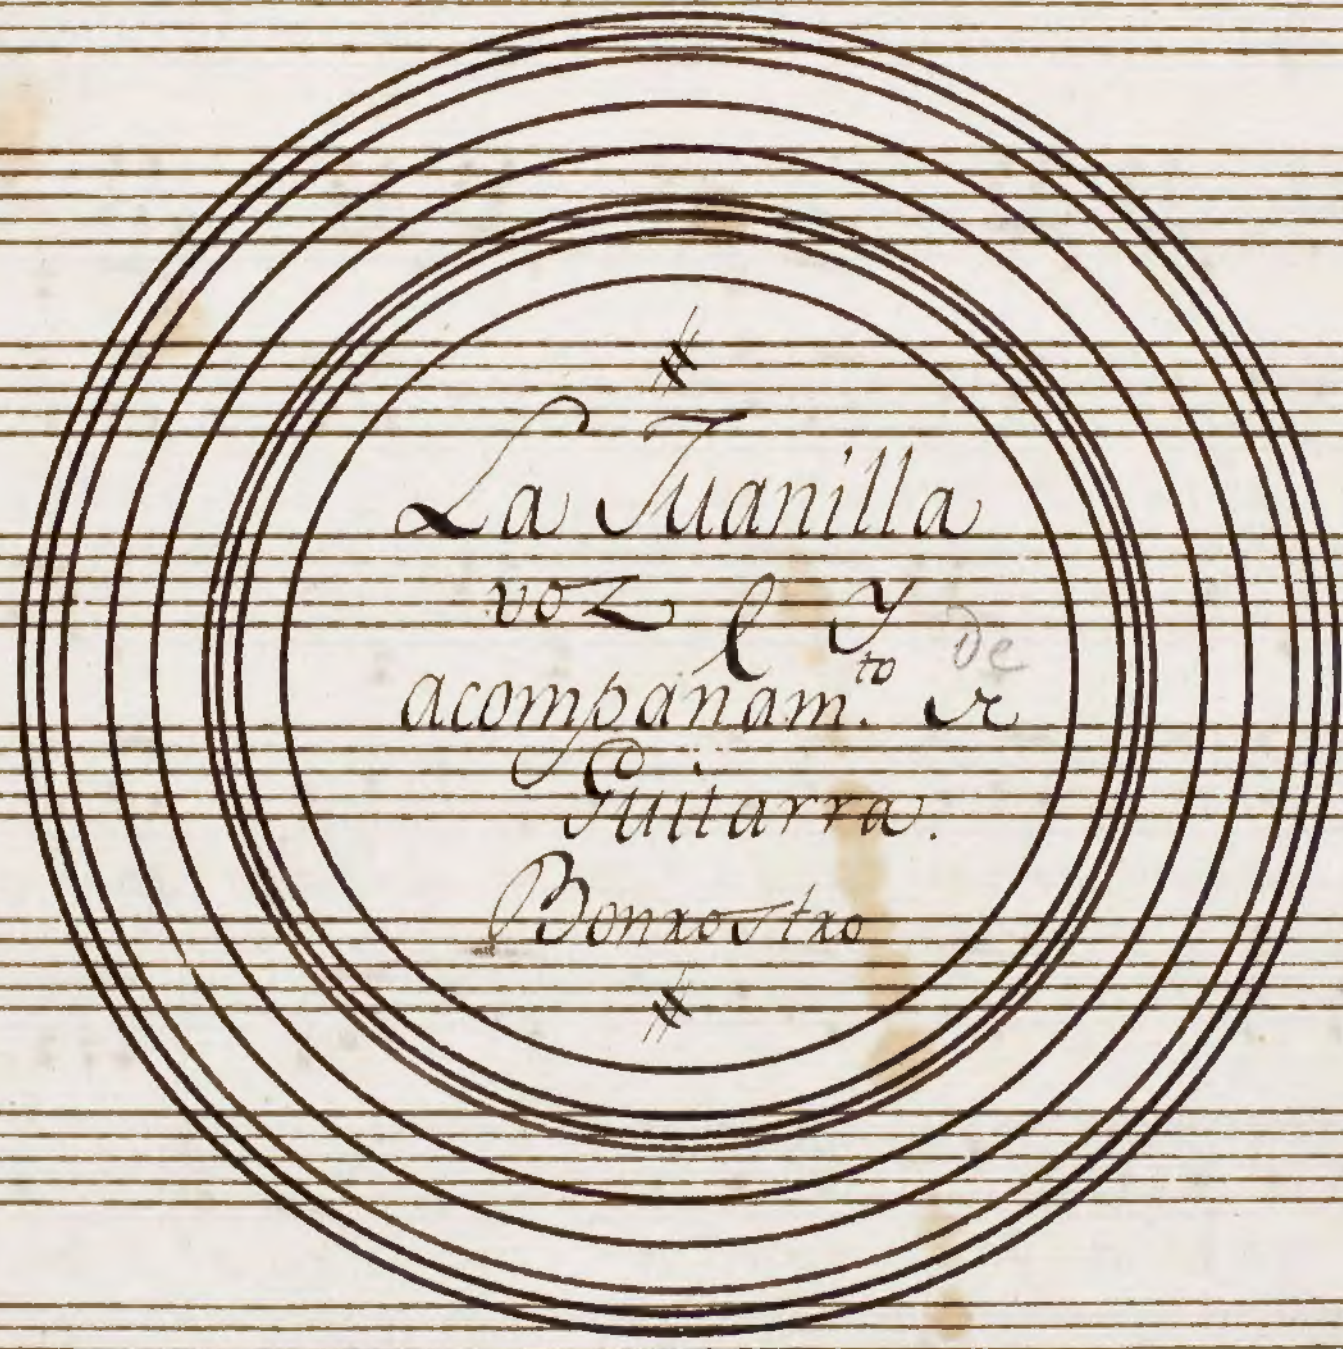 La Juanilla
voz e y
acompañam.to de
Guitarra.
Bonrostro